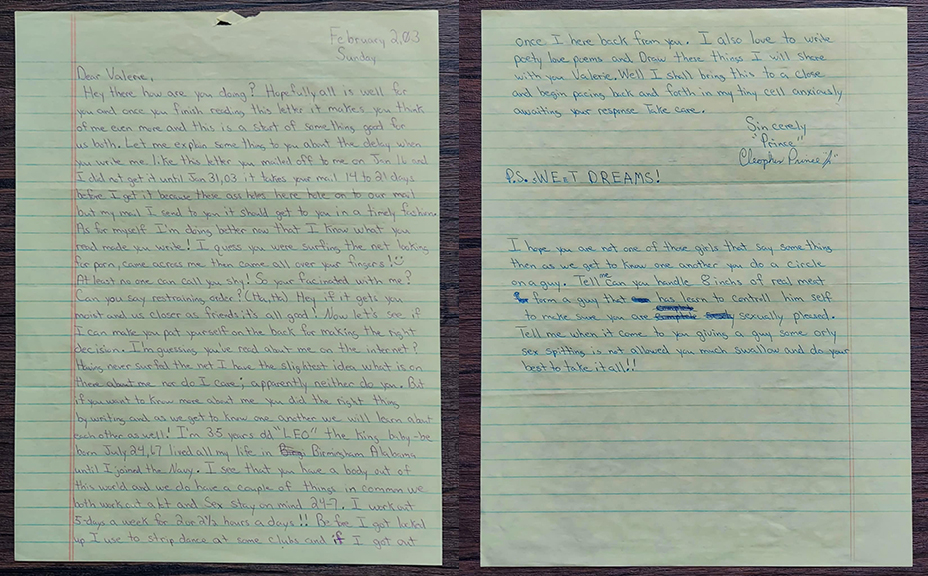 February 2,03
Sunday
Dear Valerie,
Hey there how are you doing? Hopefully all is well for
you and once you finish reading this letter it makes you think
of me even more and this is a start of something good for
us both. Let me explain some thing to you about the delay when
you write me like this letter you mailed off to me on Jan 16 and
I did not get it until Jan 31,03 it takes your mail 14 to 21 days
before I get it because these ass holes here hole on to our mail
but my mail I send to you it should get to you in a timely fashion.
As for myself I'm doing better now that I know what you
read made you write! I guess you were surfing the net looking
for porn, came across me then came all over your fingers!
At least no one can call you shy! So your facinated with me?
Can you say restraining order? (Ha, ha) Hey if it gets you
moist and us closer as friends it's all good! Now let's see if
I can make you pat yourself on the back for making the right
decision. I'm guessing you've read about me on the internet?
Having never surfed the net I have the slightest idea what is on
there about me nor do I care; apparently neither do you. But
if you want to know more about me you did the right thing
by writing and as we get to know one another we will learn about
each other as well! I'm 35 years old "LEO" the King baby-be
born July 24,67 lived all my life in Birmingham Alabama
until I joined the Navy. I see that you have a body out of
this world and we do have a couple of things in common we
both workout a lot and Sex stay on mind 24-7. I workout
5-days a week for 2 or 2½ hours a days!! Before I got locked
up I use to strip dance at some clubs and if I got out
once I here back from you. I also love to write
poetry, love poems and Draw these things I will share
with you Valerie. Well I shall bring this to a close
and begin pacing back and forth in my tiny cell anxiously
awaiting your response Take care.
Sincerely
"Prince"
Cleophus Prince Jr
P.S. SWEET DREAMS!
I hope you are not one of those girls that say some thing
then as we get to know one another you do a circle
on a guy. Tell me Can you handle 8 inchs of real meat
form a guy that has learn to controll him self
to make sure you are sexually pleased.
Tell me when it come to you giving a guy some orly
sex spitting is not allowed you much swallow and do your
best to take it all!!